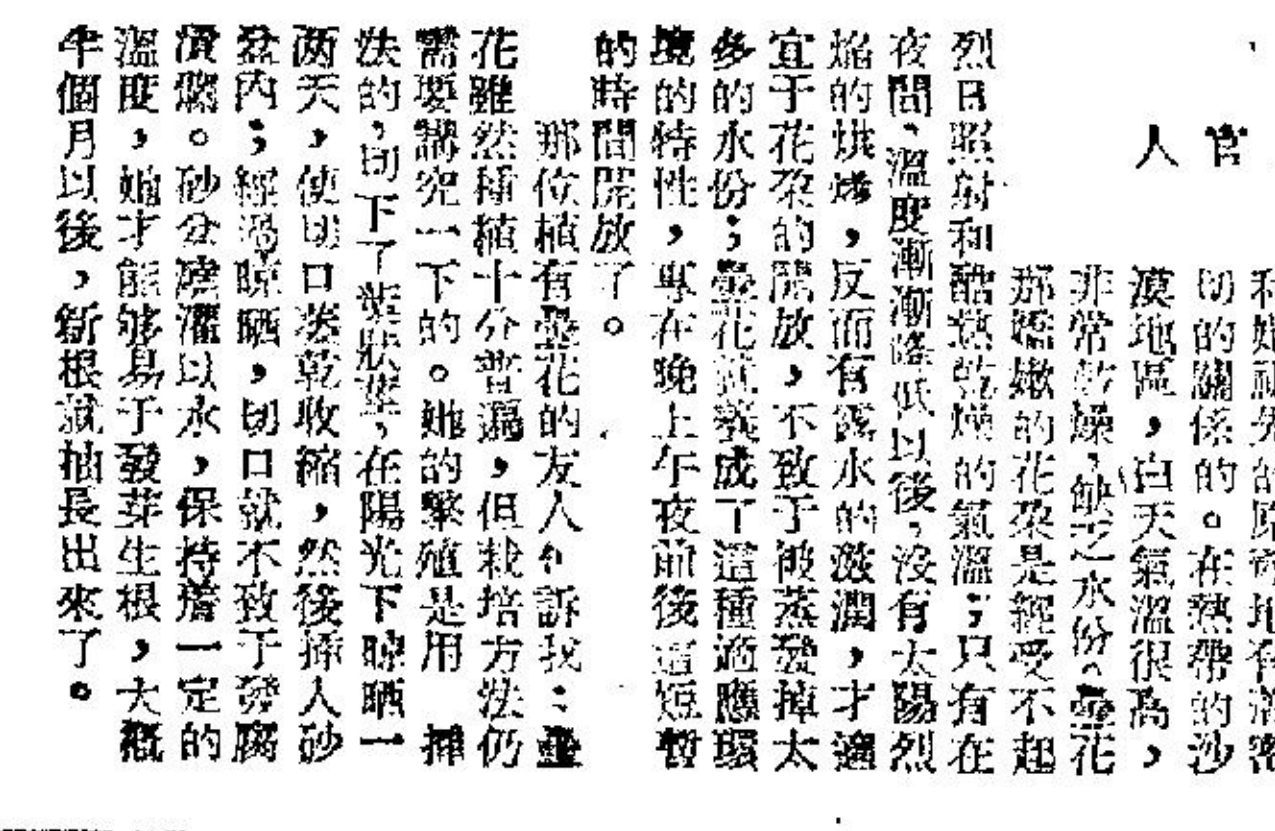 官人
和她祖先的原產地有
切的關係的。在熱帶的沙
漠地區，白天氣溫很高，
非常乾燥，缺乏水份。曇花
那嬌嫩的花朶是經受不起
烈日照射和酷熱乾燥的氣溫；只有在
夜間，溫度漸漸降低以後，沒有太陽烈
焰的烘烤，反而有露水的滋潤，才適
宜于花朶的開放，不致于被蒸發掉太
多的水份；曇花就養成了這種適應環
境的特性，專在晚上午夜前後這短暫
的時間開放了。
那位植有曇花的友人吿訴我：曇
花雖然種植十分普遍，但栽培方法仍
需要講究一下的。她的繁殖是用　揷
法的，切下了葉狀莖，在陽光下晾晒一
两天，使切口蒸乾收縮，然後揷入砂
盆內；經過晾晒，切口就不致于發腐
潰爛。砂盆澆灌以水，保持着一定的
溫度，她才能够易于發芽生根，大槪
半個月以後，新根就抽長出來了。